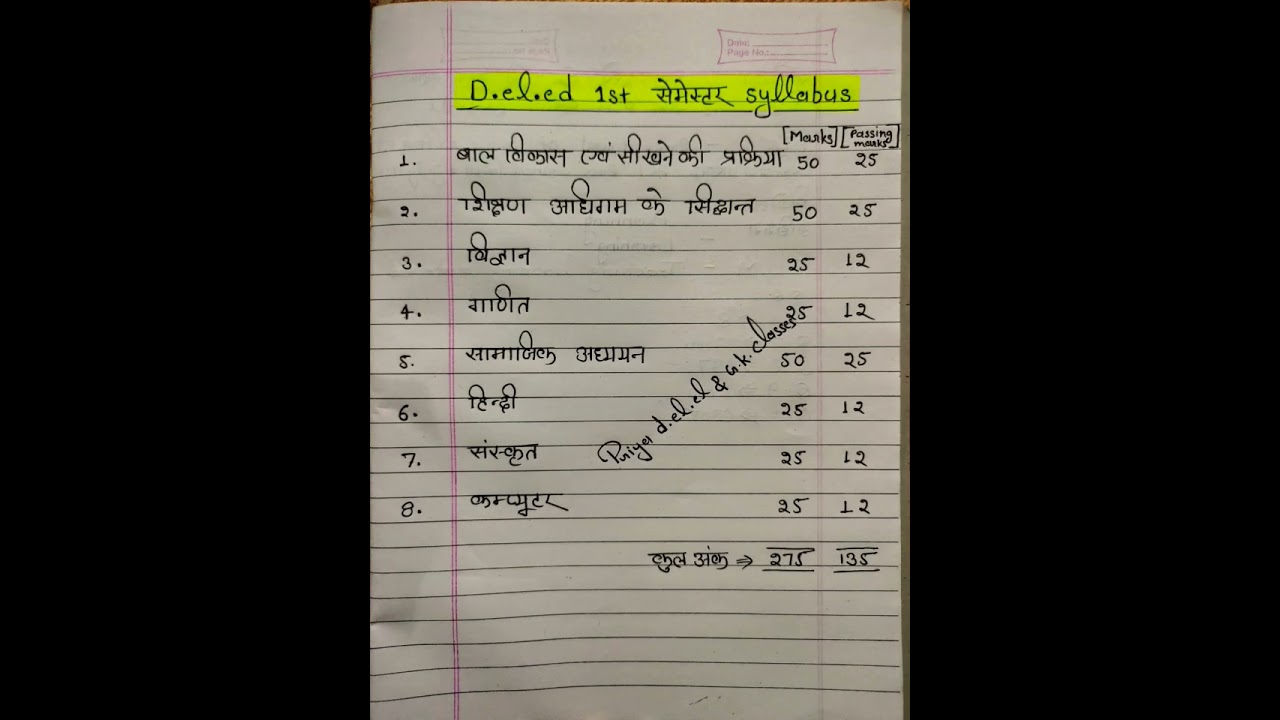 Date:
Page No.:
D.el.ed 1st सेमेस्टर syllabus
[Marks] [Passing marks]
1. बाल विकास एवं सीखने की प्रक्रिया 50 25
2. शिक्षण अधिगम के सिद्धान्त 50 25
3. विज्ञान 25 12
4. गणित 25 12
5. सामाजिक अध्ययन 50 25
6. हिन्दी 25 12
7. संस्कृत 25 12
8. कम्प्यूटर 25 12
कुल अंक ⇒ 275 135
Priya d.el.el & G.K. classes